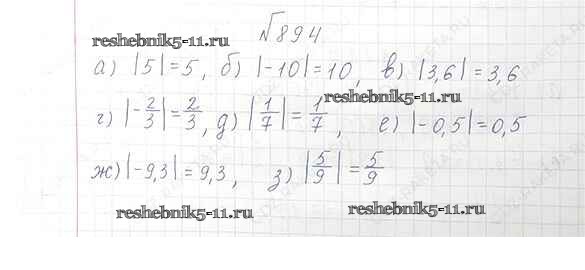 №894
reshebnik5-11.ru
а) |5|=5, б) |-10|=10, в) |3,6|=3,6
reshebnik5-11.ru
г) |-2/3|=2/3, д) |1/7|=1/7, е) |-0,5|=0,5
ж) |-9,3|=9,3, з) |5/9|=5/9
reshebnik5-11.ru reshebnik5-11.ru